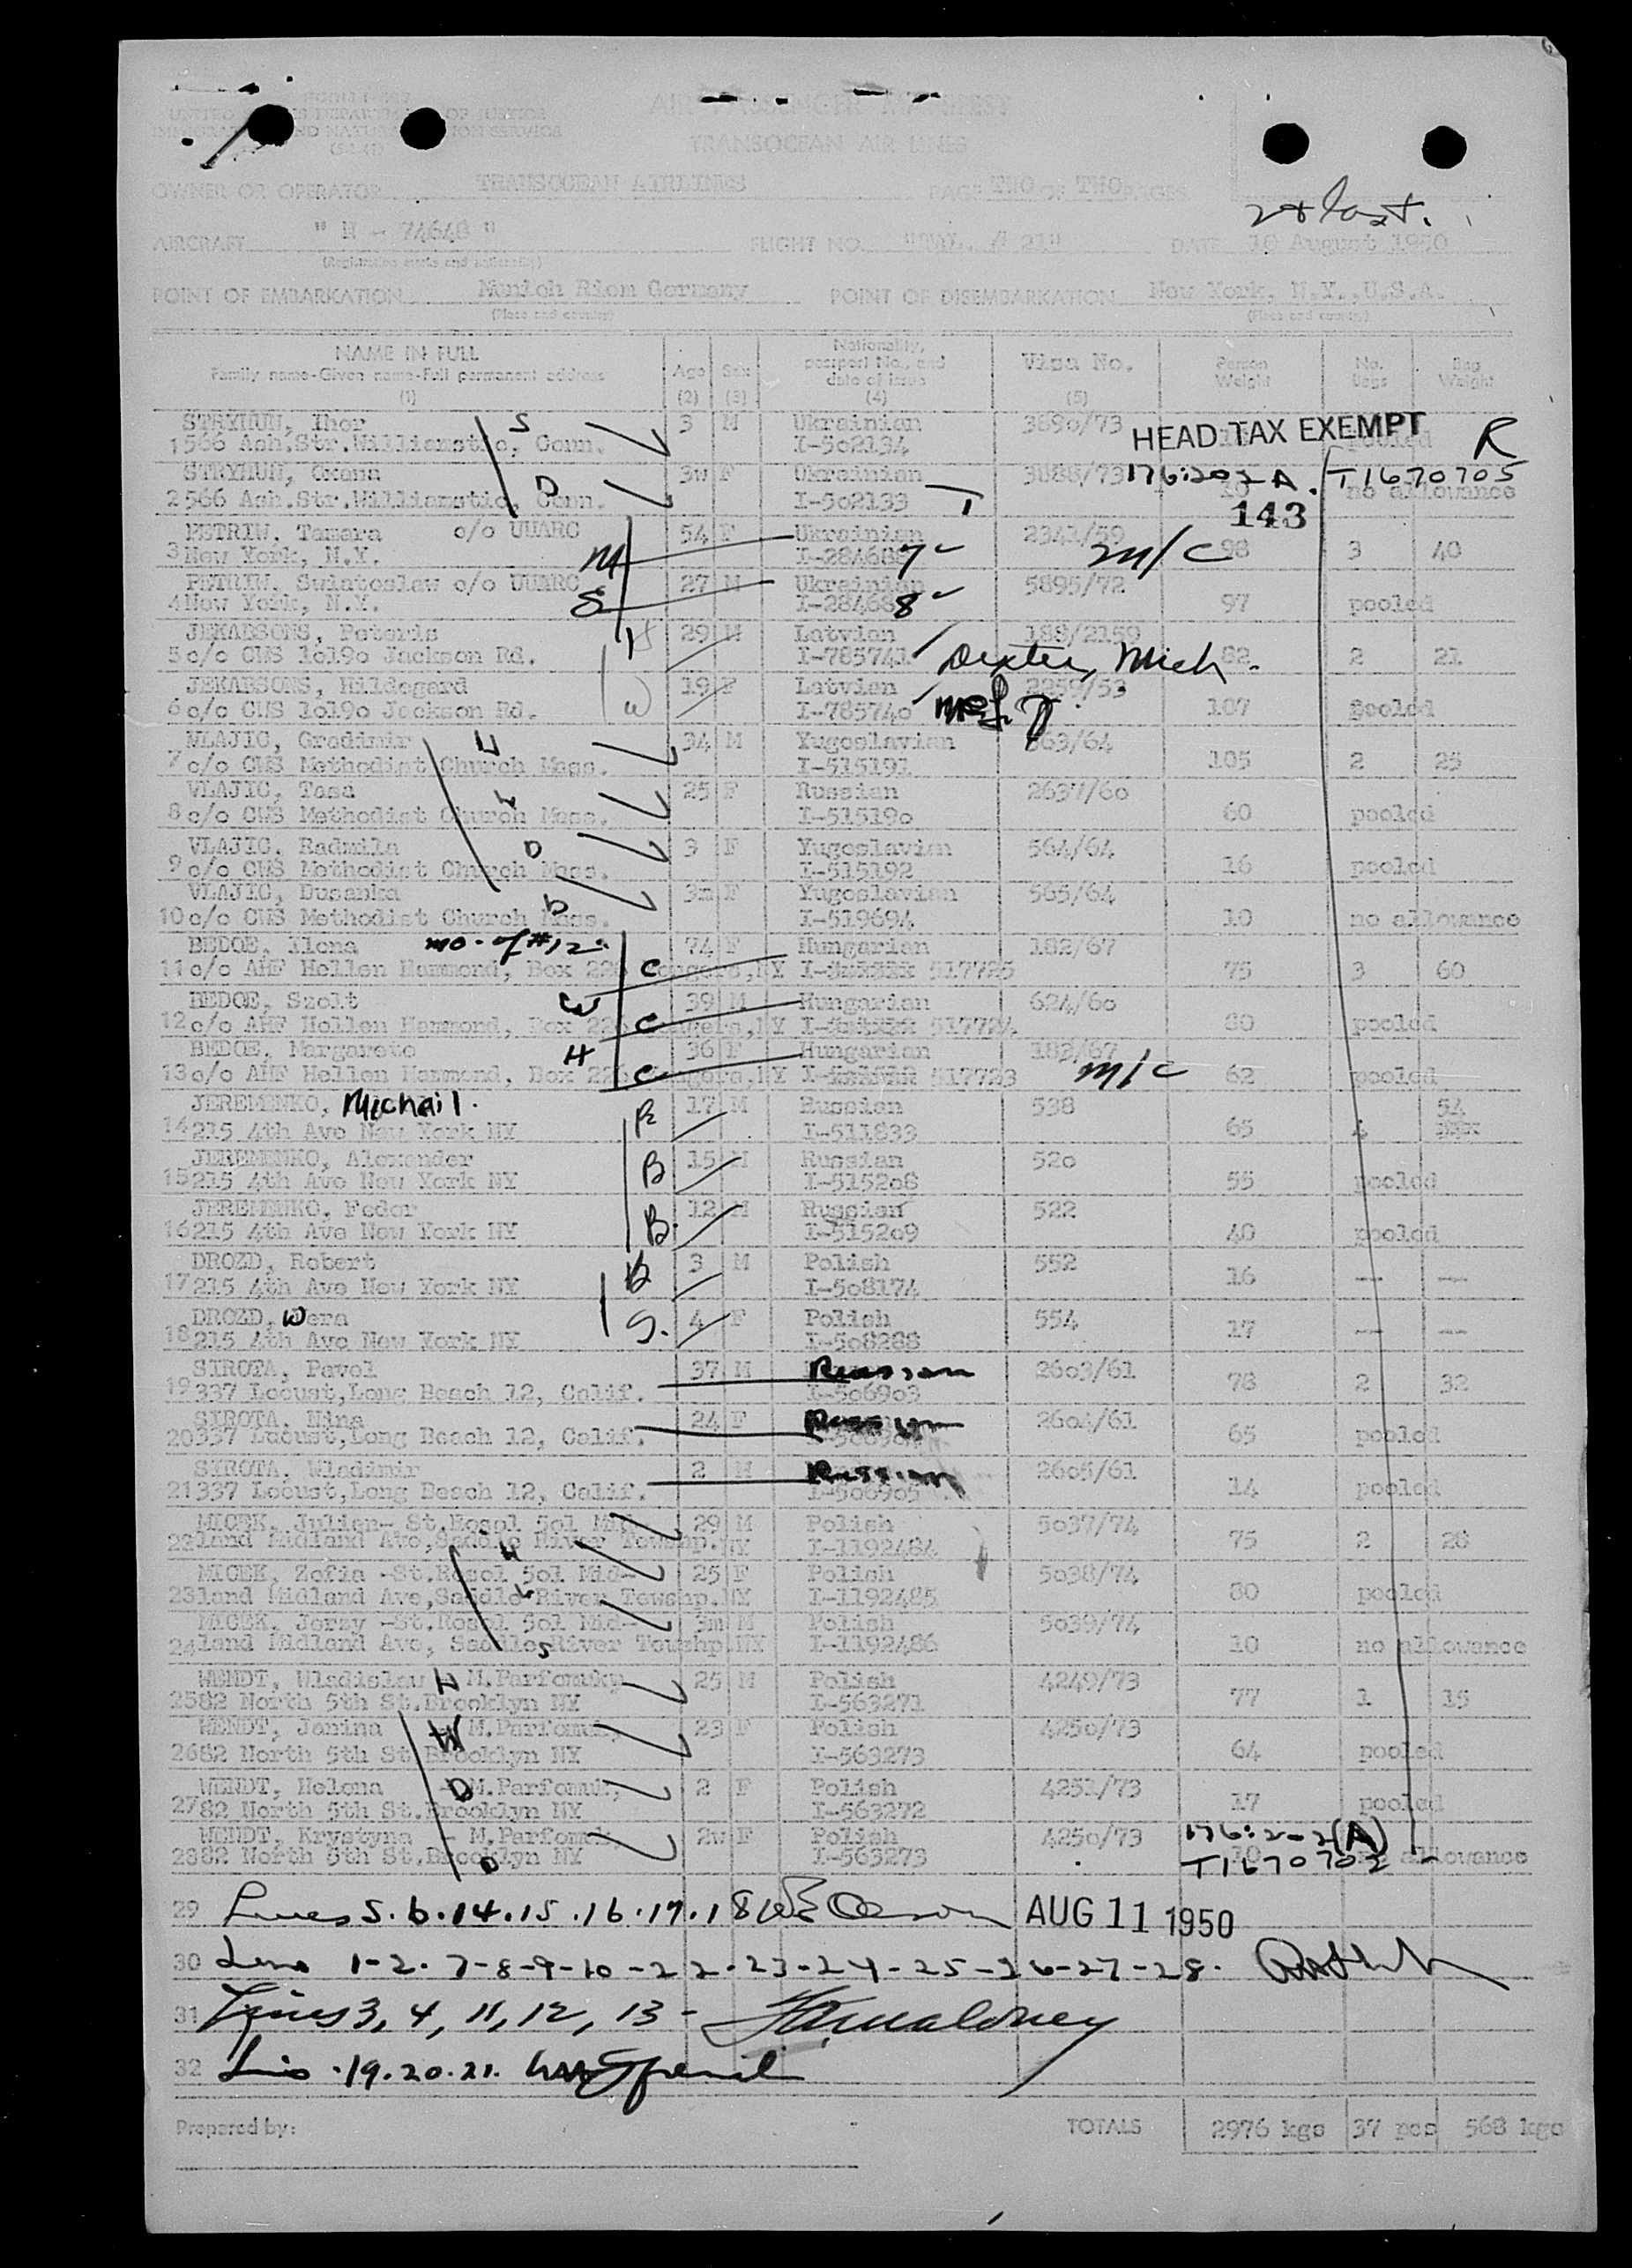 UNITED STATES DEPARTMENT OF JUSTICE
IMMIGRATION AND NATURALIZATION SERVICE
AIR PASSENGER MANIFEST
TRANSOCEAN AIR LINES
OWNER OR OPERATOR TRANSOCEAN AIRLINES PAGE TWO OF TWO PAGES
2 & last.
AIRCRAFT " N - 74648 " FLIGHT NO. "TAL. # 21" DATE 10 August 1950
(Registration marks and nationality)
POINT OF EMBARKATION Munich Riem Germany POINT OF DISEMBARKATION New York, N.Y.,U.S.A.
(Place and country) (Place and country)
NAME IN FULL Age Sex Nationality, passport No., and date of issue Visa No. Person Weight No. Bags Bag Weight
Family name-Given name-Full permanent address
(1) (2) (3) (4) (5)
STRYHUN, Ihor S 3 M Ukrainian 3890/73 HEAD TAX EXEMPT R
1 566 Ash.Str.Willimantic, Conn. I-502134 pooled
STRYHUN, Oksana D 3w F Ukrainian 3888/73 176:202 A. T1670705
2 566 Ash.Str.Willimantic, Conn. I-502133 T 10 no allowance
143
PETRIW, Tamara c/o UUARC 54 F Ukrainian 2341/59
3 New York, N.Y. M I-284687 m/c 98 3 40
PETRIW, Swiatoslaw c/o UUARC 27 M Ukrainian 5895/72
4 New York, N.Y. S I-284688 97 pooled
JEKABSONS, Peteris H 29 M Latvian 188/2159
5 c/o CWS 10190 Jackson Rd. I-785741 Dexter, Mich. 82 2 21
JEKABSONS, Hildegard 19 F Latvian 2259/53
6 c/o CWS 10190 Jackson Rd. W I-785740 107 pooled
VLAJIC, Gradimir H 34 M Yugoslavian 563/64
7 c/o CWS Methodist Church Mass. I-515191 105 2 25
VLAJIC, Tasa W 25 F Russian 2637/60
8 c/o CWS Methodist Church Mass. I-515190 60 pooled
VLAJIC, Radmila D 3 F Yugoslavian 564/64
9 c/o CWS Methodist Church Mass. I-515192 16 pooled
VLAJIC, Dusanka D 3m F Yugoslavian 565/64
10 c/o CWS Methodist Church Mass. I-519694 10 no allowance
BEDOE, Ilona mo. of #12. 74 F Hungarian 182/67
11 c/o AHF Hellen Hammond, Box 226 Congers,NY C I- 517725 75 3 60
BEDOE, Szolt W 39 M Hungarian 624/60
12 c/o AHF Hellen Hammond, Box 226 Congers,NY C I- 517724 80 pooled
BEDOE, Margarete H 36 F Hungarian 183/67
13 c/o AHF Hellen Hammond, Box 226 Congers,NY C I- 517723 m/c 62 pooled
JEREMENKO, Michail. B 17 M Russian 538 54
14 215 4th Ave New York NY I-511833 65 4
JEREMENKO, Alexander B 15 M Russian 520
15 215 4th Ave New York NY I-515208 55 pooled
JEREMENKO, Fedor B. 12 M Russian 522
16 215 4th Ave New York NY I-515209 40 pooled
DROZD, Robert B 3 M Polish 552
17 215 4th Ave New York NY I-508174 16 -- --
DROZD, Wera S. 4 F Polish 554
18 215 4th Ave New York NY I-508288 17 -- --
SIROTA, Pavel 37 M Russian 2603/61
19 337 Locust,Long Beach 12, Calif. I-506903 78 2 32
SIROTA, Nina 24 F Russian 2604/61
20 337 Locust,Long Beach 12, Calif. 65 pooled
SIROTA, Wladimir 2 M Russian 2605/61
21 337 Locust,Long Beach 12, Calif. I-506905 14 pooled
MICEK, Julian- St.Rosol 501 Mid- 29 M Polish 5037/74
22 land Midland Ave,Saddle River Towshp.NY H I-1192484 75 2 28
MICEK, Zofia -St.Rosol 501 Mid- 25 F Polish 5038/74
23 land Midland Ave,Saddle River Towshp.NY W I-1192485 80 pooled
MICEK, Jerzy -St.Rosol 501 Mid- 3m M Polish 5039/74
24 land Midland Ave, Saddle River Towshp NY S I-1192486 10 no allowance
WENDT, Wladislaw H M.Parfomuky 25 M Polish 4249/73
25 82 North 5th St.Brooklyn NY I-563271 77 1 15
WENDT, Janina W M.Parfomuk, 23 F Polish 4250/73
26 82 North 5th St.Brooklyn NY I-563273 64 pooled
WENDT, Helena D M.Parfomuk, 2 F Polish 4251/73
27 82 North 5th St.Brooklyn NY I-563272 17 pooled
WENDT, Krystyna - M.Parfomuk, 2w F Polish 4250/73 176:2-2(A)
28 82 North 5th St.Brooklyn NY D I-563273 10 T1670702 allowance
29 Lines 5.6.14.15.16.17.18 AUG 11 1950
30 Lines 1-2-7-8-9-10-22-23-24-25-26-27-28.
31 Lines 3, 4, 11, 12, 13 - Maloney
32 Lines .19.20.21.
Prepared by: TOTALS 2976 kgs 37 pcs 568 kgs